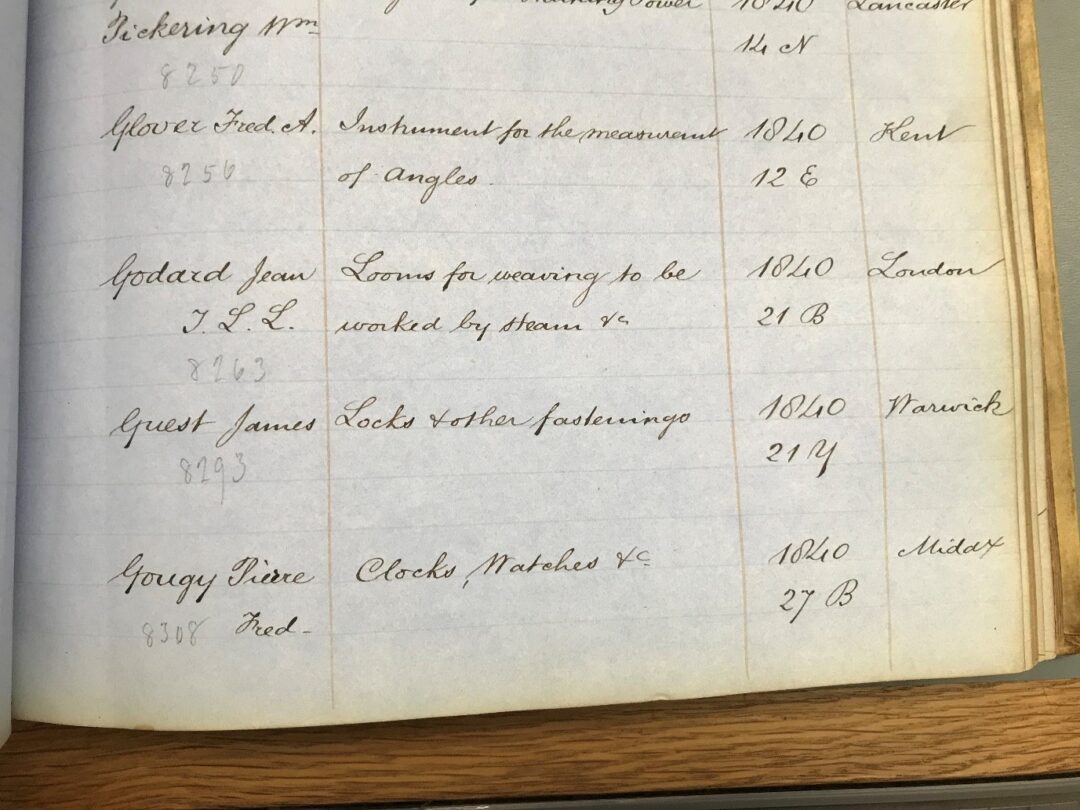 Power 1840 Lancaster
Pickering Wm 14 N
8250
Glover Fred. A. Instrument for the measuremt 1840 Kent
8256 of Angles. 12 E
Godard Jean Looms for weaving to be 1840 London
J. L. L. worked by steam &c 21 B
8263
Guest James Locks & other fastenings 1840 Warwick
8293 21 Y
Gougy Pierre Clocks, Watches &c 1840 Middx
8308 Fred- 27 B